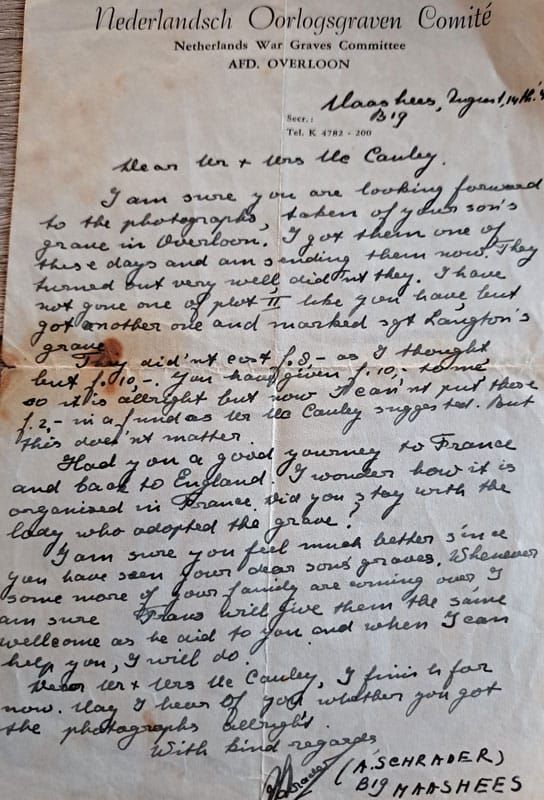 Nederlandsch Oorlogsgraven Comité
Netherlands War Graves Committee
AFD. OVERLOON
Maashees, August, 14th.
Secr.: B19
Tel. K 4782 - 200
Dear Mr + Mrs Mc Cauley.
I am sure you are looking forward
to the photographs, taken of your son's
grave in Overloon. I got them one of
these days and am sending them now. They
turned out very well did'nt they. I have
not gone one of plot II like you have, but
got another one and marked sgt Langton's
grave
They did'nt cost f.8,- as I thought
but f.10,-. You have given f.10,- to me
so it is allright but now I can'nt put those
f.2,- in a fund as Mr Mc Cauley suggested. But
this does'nt matter.
Had you a good yourney to France
and back to England. I wonder how it is
organised in France. Did you stay with the
lady who adopted the grave?
I am sure you feel much better since
you have seen your dear sons' graves. Whenever
some more of your family are coming over I
am sure Frans will give them the same
wellcome as he did to you and when I can
help you, I will do.
Dear Mr + Mrs Mc Cauley, I finish for
now. May I hear of you whether you got
the photographs allright.
With kind regards
Schrader (A. SCHRADER)
B19 MAASHEES